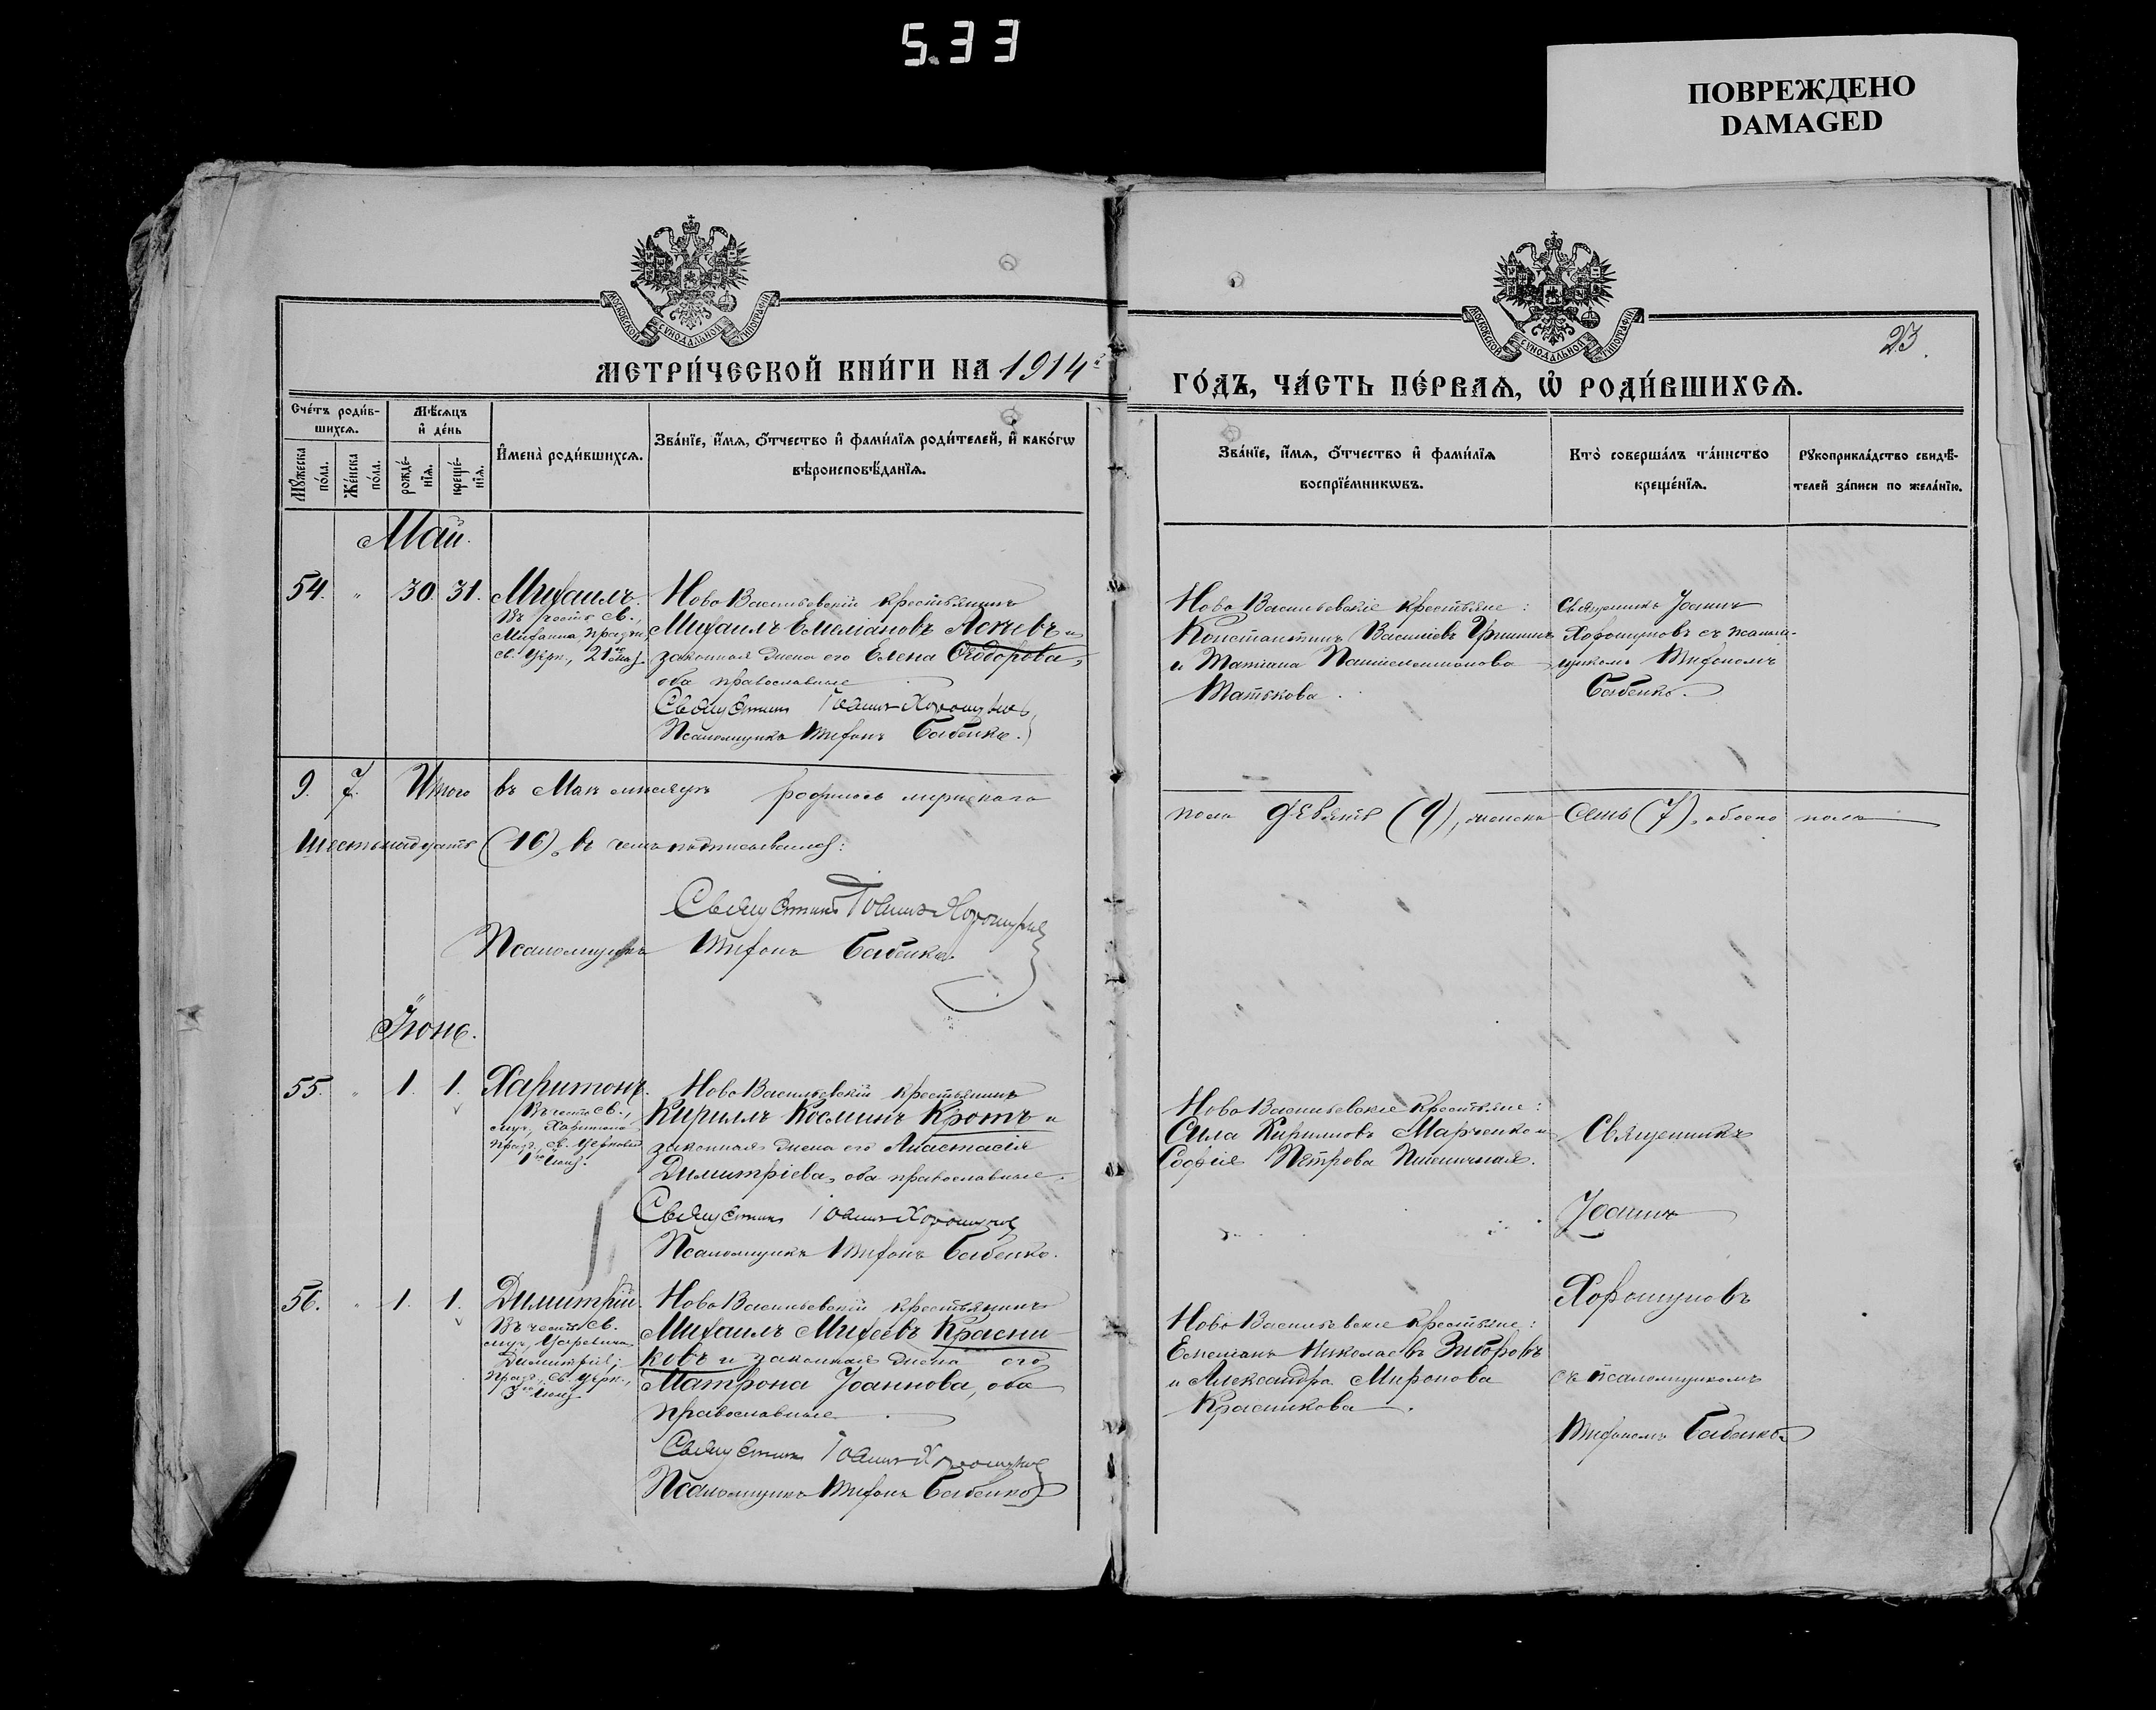 5.33
ПОВРЕЖДЕНО
DAMAGED
МОСКОВСКОЙ СѴНОДАЛЬНОЙ ТИПОГРАФІИ
МОСКОВСКОЙ СѴНОДАЛЬНОЙ ТИПОГРАФІИ
23.
МЕТРИ́ЧЕСКОЙ КНИ́ГИ НА 1914 й
ГО́ДЪ, ЧА́СТЬ ПЕ́РВАѦ, Ѡ҆ РОДИ́ВШИХСѦ.
Сче́тъ роди́в-
шихсѧ.
Мꙋжеска по́ла.
Же́нска по́ла.
Мѣ́сѧцъ
и҆ де́нь
рожде́-
нїѧ.
креще́-
нїѧ.
И҆мена̀ роди́вшихсѧ.
Зва́нїе, и҆́мѧ, ѻ҆́тчество и҆ фами́лїѧ роди́телей, и҆ како́гѡ
вѣроисповѣ́данїѧ.
Зва́нїе, и҆́мѧ, ѻ҆́тчество и҆ фами́лїѧ
воспрїе́мникѡвъ.
Кто̀ соверша́лъ та́инство
креще́нїѧ.
Рꙋкоприкла́дство свидѣ́-
телей за́писи по жела́нїю.
Май.
54. " 30. 31. Михаилъ.
Въ честь св.,
Михаила, празд.
св. Церк., 21го мая.
НовоВасильевскій крестьянинъ
Михаилъ Емеліановъ и
законная жена его Елена Ѳеодорова,
оба православные
Священникъ Іоаннъ Хорошуновъ
Псаломщикъ Тихонъ Бабенко.
Ново Васильевскіе крестьяне:
Константинъ Василіевъ
и Татіана Пантелеимонова
Матькова.
Священникъ Іоаннъ
Хорошуновъ съ псалом-
щикомъ Тихономъ
Бабенко.
9. 7. Итого въ Маѣ мѣсяцѣ родилось мужескаго
пола девять (9), женска семь (7), обоего пола
шестьнадцать (16), въ чемъ подписываемся:
Священникъ Іоаннъ Хорошуновъ
Псаломщикъ Тихонъ Бабенко.
Іюнь.
55. " 1. 1. Харитонъ.
Въ честь св.,
муч., Харитона
празд. св. Церковью
1го Іюня.
НовоВасильевскій крестьянинъ
Кириллъ Косминъ Кротъ и
законная жена его Анастасія
Димитріева, оба православные.
Священникъ Іоаннъ Хорошуновъ
Псаломщикъ Тихонъ Бабенко.
Ново Васильевскіе крестьяне:
Сила Кирилловъ Марченко и
Софія Петрова Пшеничная.
Священникъ
Іоаннъ
Хорошуновъ
съ псаломщикомъ
Тихономъ Бабенко
56. " 1. 1. Димитрій.
Въ честь св.
муч., Царевича
Димитрія,
празд., св. Церк.,
3го Іюня.
Ново Васильевскій крестьянинъ
Михаилъ Михеевъ Красни-
ковъ и законная жена его
Матрона Іоаннова, оба
православные.
Священникъ Іоаннъ Хорошуновъ
Псаломщикъ Тихонъ Бабенко
Ново Васильевскіе крестьяне:
Емеліанъ Николаевъ Зиборовъ
и Александра Миронова
Красникова.